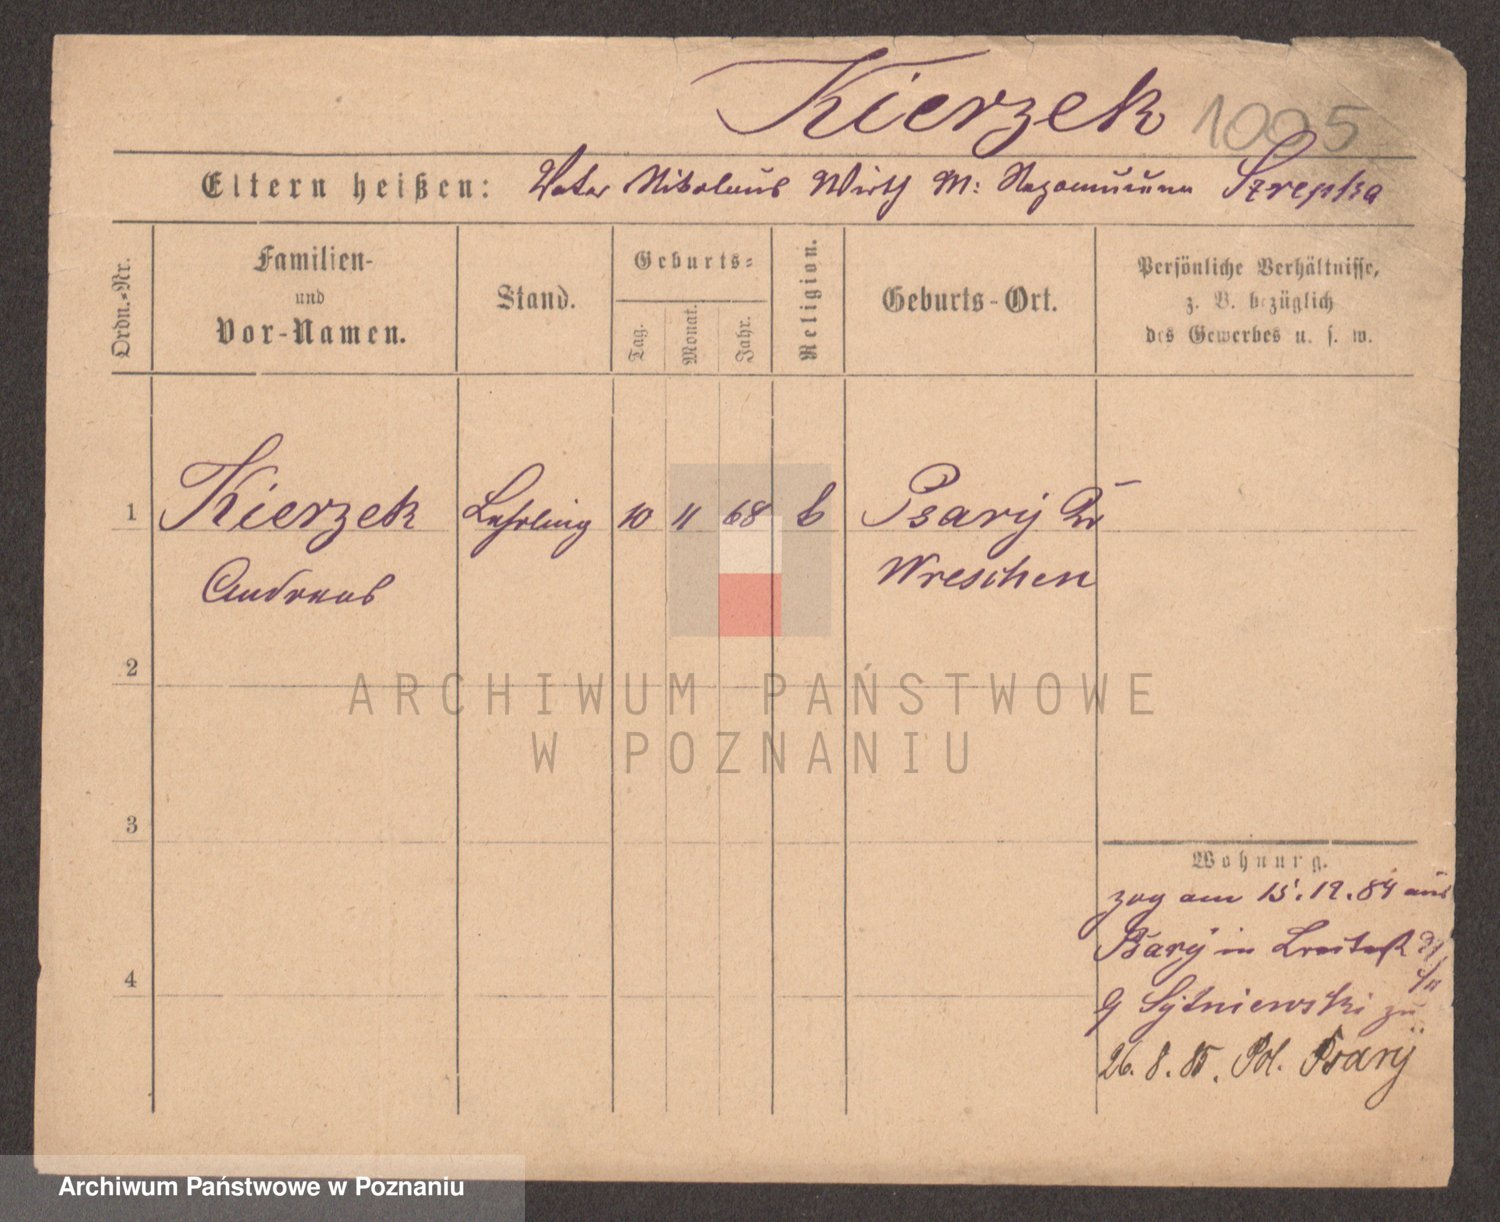 Kierzek 1005
Eltern heißen: Vater Nikolaus Wirth M: Nepomucena Szrepka
Ordn.-Nr.
Familien-
und
Vor-Namen.
Stand.
Geburts-
Tag.
Monat.
Jahr.
Religion.
Geburts-Ort.
Persönliche Verhältnisse,
z. B. bezüglich
des Gewerbes u. s. w.
1 Kierzek Lehrling 10 11 68 k Psary Kr
Andreas Wreschen
2
ARCHIWUM PAŃSTWOWE
W POZNANIU
3
Wohnung.
zog am 15.12.84 aus
Psary in
4
Sytniewski zu
26. 8. 85. Pol. Psary
Archiwum Państwowe w Poznaniu